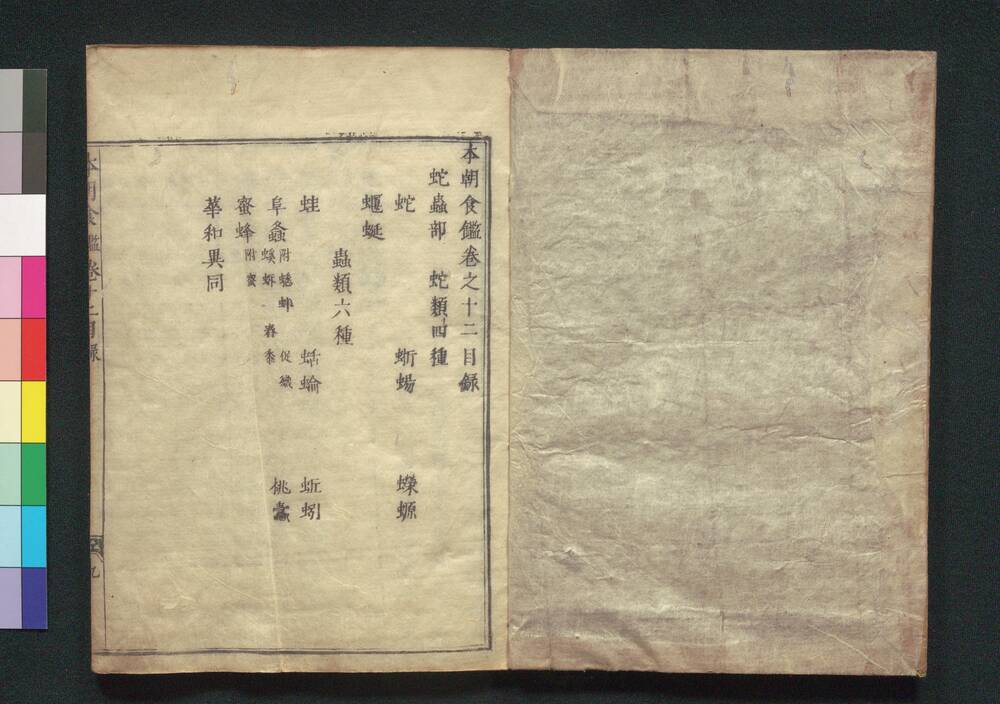 本朝食鑑卷之十二目録
蛇蟲部 蛇類四種
蛇 蜥蜴 蠑螈
蝘蜓
蟲類六種
蛙 蛞蝓 蚯蚓
阜螽 附蟋蟀 促織 螇蚸 舂黍 桃蠹
蜜蜂 附蜜
華和異同
本朝食鑑卷十二目録